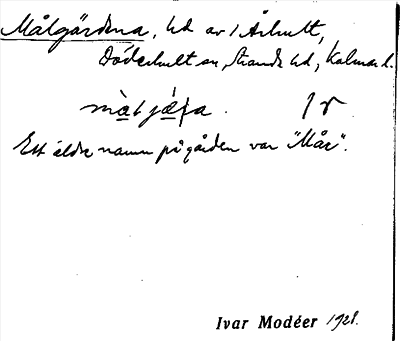 Målgårdena, hd av 1 Århult,
Döderhult sn, Stranda hd, Kalmar l.
Ett äldre namn på gården var "Måre".
Ivar Modéer 1928.